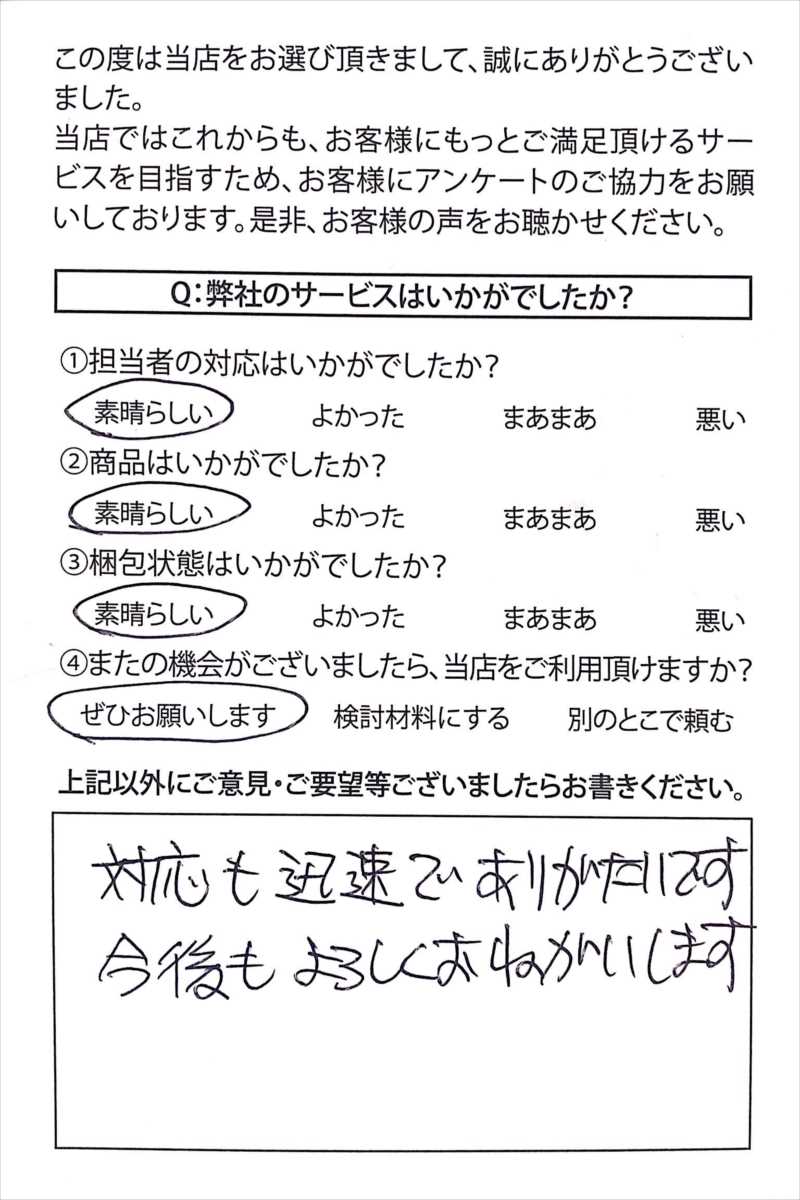 この度は当店をお選び頂きまして、誠にありがとうござい
ました。
当店ではこれからも、お客様にもっとご満足頂けるサー
ビスを目指すため、お客様にアンケートのご協力をお願
いしております。是非、お客様の声をお聴かせください。
Q：弊社のサービスはいかがでしたか？
①担当者の対応はいかがでしたか？
素晴らしい よかった まあまあ 悪い
②商品はいかがでしたか？
素晴らしい よかった まあまあ 悪い
③梱包状態はいかがでしたか？
素晴らしい よかった まあまあ 悪い
④またの機会がございましたら、当店をご利用頂けますか？
ぜひお願いします 検討材料にする 別のとこで頼む
上記以外にご意見・ご要望等ございましたらお書きください。
対応も迅速でありがたいです
今後もよろしくおねがいします